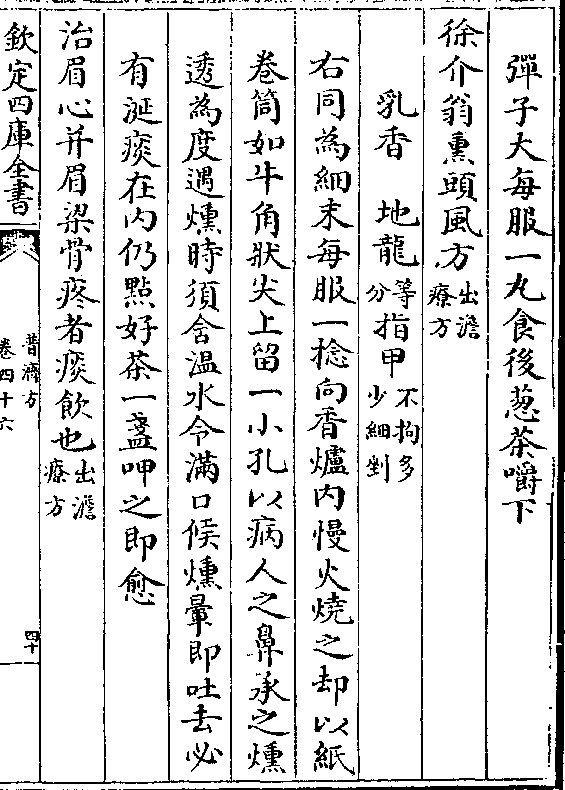 彈子大每服一丸食後葱茶嚼下
徐介翁熏頭風方出澹療方
乳香　地龍等分指甲不拘多少細剉
右同為細末每服一捻向香爐内慢火燒之却以紙
卷筒如牛角狀尖上留一小孔以病人之鼻承之燻
透為度遇燻時須含温水令滿口候燻暈即吐去必
有涎痰在内仍點好茶一盞呷之即愈
治眉心并眉梁骨疼者痰飲也出澹療方
欽定四庫全書
普濟方
卷四十六
四十